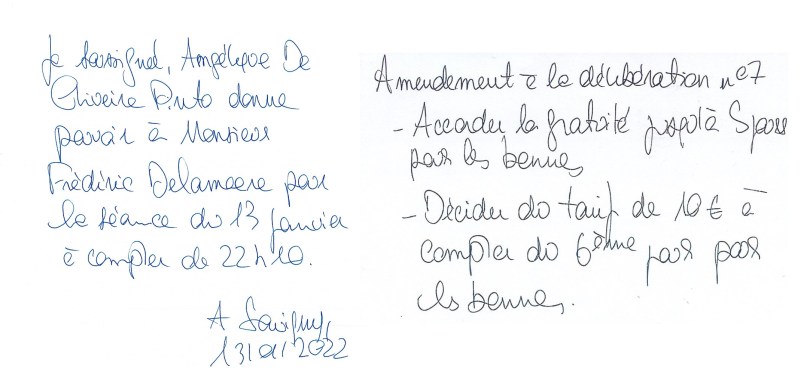 Je soussigné, Angélique De
Oliveira Pinto donne
pouvoir à Monsieur
Frédéric Delamaere pour
la séance du 13 janvier
à compter de 22h10.
A Savigny,
13/01/2022
Amendement à la délibération n°7
- Accorder la gratuité jusqu'à 5 jours
pour les bennes
- Décider du tarif de 10€ à
compter du 6ème jour pour
les bennes.